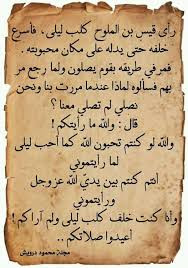 رأى قيس بن الملوح كلب ليلى، فأسرع
خلفه حتى يدله على مكان محبوبته.
فمر في طريقه بقوم يصلون ولما رجع مر
بهم فسألوه لماذا عندما مررت بنا ونحن
نصلي لم تصلي معنا ؟
قال : والله ما رأيتكم !
والله لو كنتم تحبون الله كما أحب ليلى
لما رأيتموني
أنتم كنتم بين يديّ الله عز وجل
ورأيتموني
وأنا كنت خلف كلب ليلى ولم أراكم !
أعيدوا صلاتكم ..
مجلة محمود درويش